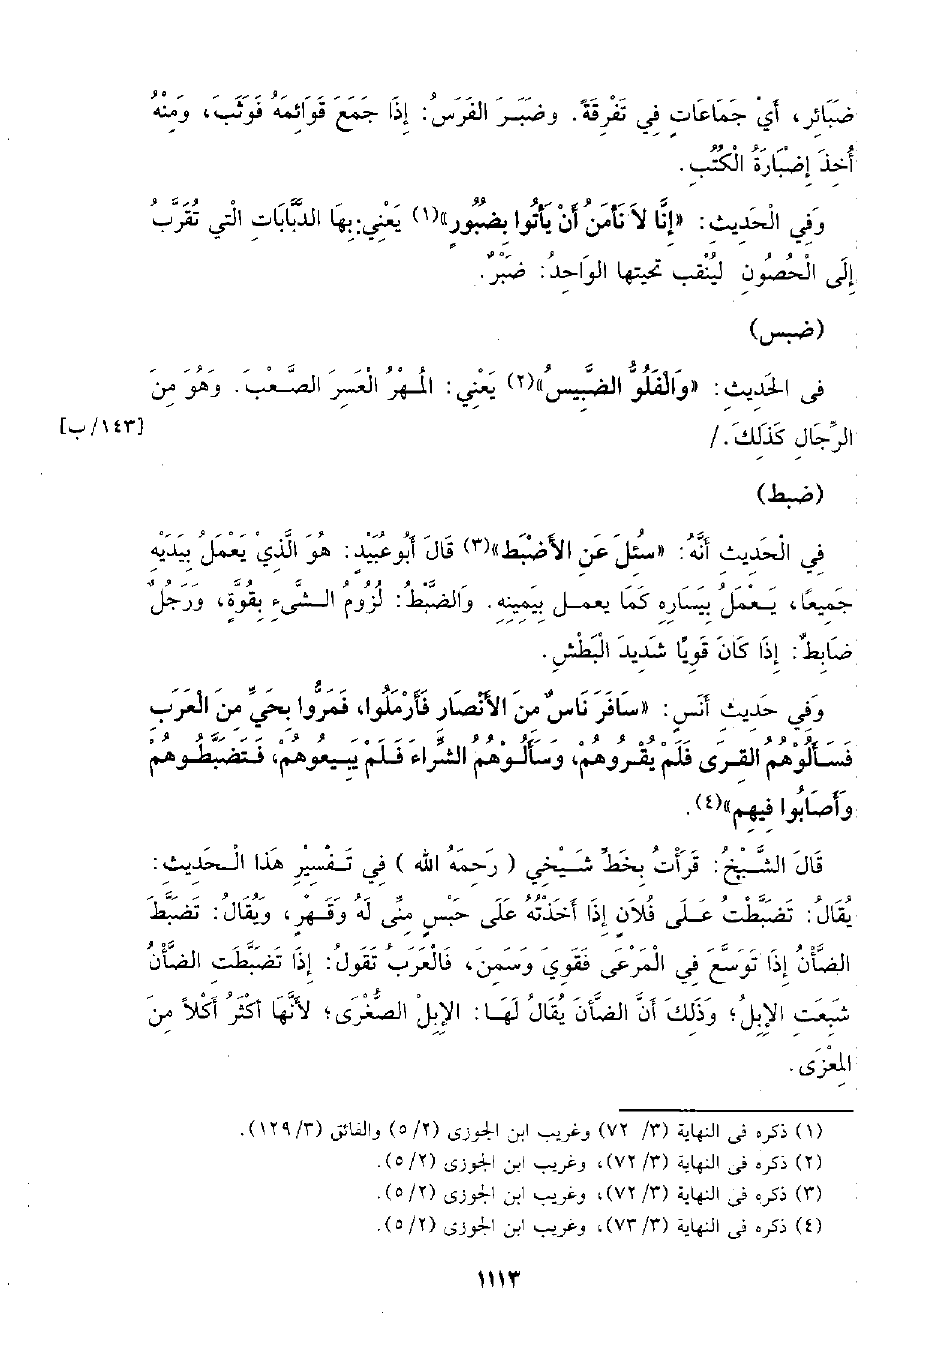 ضَبَائِر، أَيْ جَمَاعَاتٍ فِي تَفْرِقَةٍ. وضَبَرَ الفَرَسُ: إِذَا جَمَعَ قَوَائِمَهُ فَوَثَبَ، وَمِنْهُ
أُخِذَ إِضْبَارَةُ الْكُتُبِ.
وَفِي الْحَدِيثِ: «إِنَّا لاَ نَأمَنُ أَنْ يَأتُوا بِضُبُورٍ»(١) يَعْنِي: بِهَا الدَّبَّابَاتِ الْتِي تُقَرَّبُ
إِلَى الْحُصُونِ لِيُنْقب تحيتها الوَاحِدُ: ضَبْرٌ.
(ضبس)
فى الحَدِيثِ: «وَالْفَلُوُّ الضَّبِيسُ»(٢) يَعْنِي: الْمُهْرُ الْعَسِرَ الصَّعْبَ. وَهُوَ مِنَ
الرِّجَالِ كَذَلِكَ. /
[١٤٣/ب]
(ضبط)
فِي الْحَدِيثِ أَنَّهُ: «سُئِلَ عَنِ الأَضْبَطِ»(٣) قَالَ أَبُو عبَيْدٍ: هُوَ الَّذِيْ يَعْمَلُ بِيَدَيْهِ
جَمِيعًا، يَعْمَلُ بِيَسَارِه كَمَا يعمل بِيَمِينِهِ. وَالضَّبْطُ: لُزُومُ الشَّىءِ بِقُوَّةٍ، وَرَجُلٌ
ضَابِطٌ: إِذَا كَانَ قَوِيًّا شَدِيدَ الْبَطْشِ.
وَفِي حَدِيثِ أَنَسٍ: «سَافَرَ نَاسٌ مِنَ الأَنْصَارِ فَأَرْمَلُوا، فَمَرُّوا بِحَيٍّ مِنَ الْعَرَبِ
فَسَأَلُوْهُمُ القِرَى فَلَمْ يقْرُوهُمْ، وَسَأَلُوهُمُ الشِّرَاءَ فَلَمْ يَبِيعُوهُمْ، فَتَضَبَّطُوهُمْ
وَأَصَابُوا فِيهِم»(٤).
قَالَ الشَّيْخُ: قَرَأْتُ بِخَطِّ شَيْخِي ( رَحِمَهُ الله ) فِي تَفْسِيْرِ هَذَا الْحَدِيثِ:
يُقَالُ: تَضَبَّطْتُ عَلَى فُلاَنٍ إِذَا أَخَذْتُهُ عَلَى حَبْسٍ مِنِّى لَهُ وَقَهْرٍ، وَيُقَالُ: تَضَبَّطَ
الضَّأْنُ إِذَا تَوَسَّعَ فِي الْمَرْعَى فَقَوِيَ وَسَمِنَ، فَالْعَرَبُ تَقُولُ: إِذَا تَضَبَّطَتِ الضَّأْنُ
شَبَعَتِ الإِبِلُ؛ وَذَلِكَ أَنَّ الضَّأْنَ يُقَالُ لَهَا: الإِبِلُ الصُّغْرَى؛ لأَنَّهَا أَكْثَرُ أَكْلاً مِنَ
المِعْزَى.
(١) ذكره فى النهاية (٣/ ٧٢) وغريب ابن الجوزى (٥/٢) والفائق (١٢٩/٣).
(٢) ذكره فى النهاية (٧٢/٣)، وغريب ابن الجوزى (٥/٢).
(٣) ذكره فى النهاية (٧٢/٣)، وغريب ابن الجوزى (٥/٢).
(٤) ذكره فى النهاية (٧٣/٣)، وغريب ابن الجوزى (٥/٢).
١١١٣